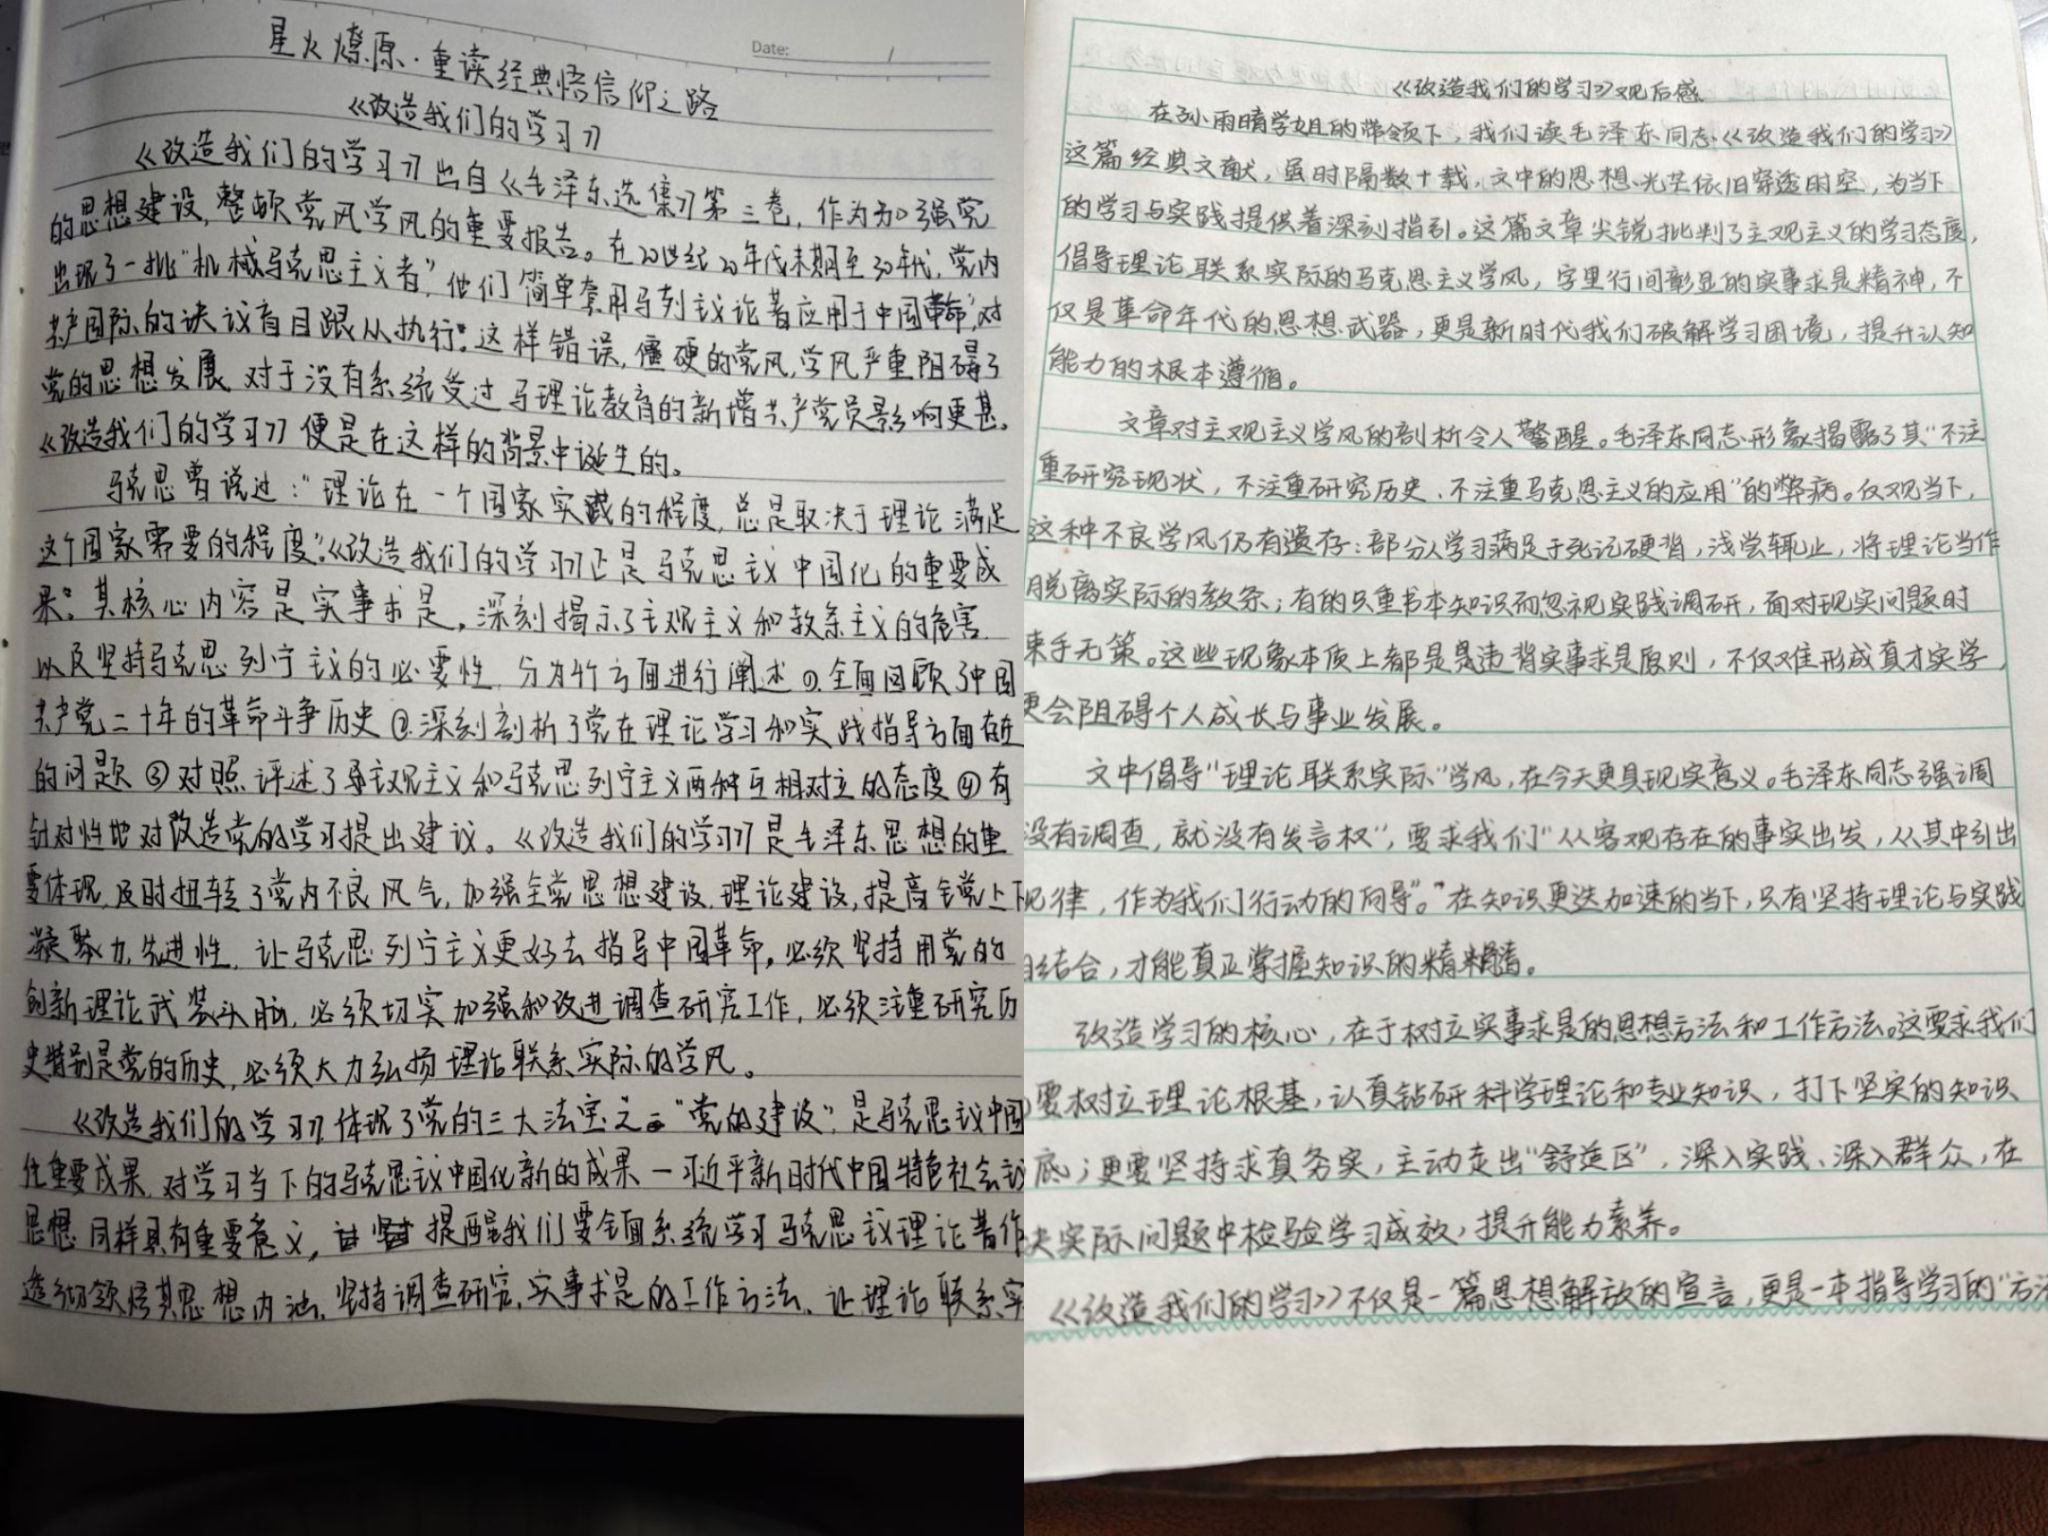 Date:
星火燎原·重读经典悟信仰之路
《改造我们的学习》
《改造我们的学习》出自《毛泽东选集》第三卷，作为加强党
的思想建设，整顿党风学风的重要报告。在20世纪20年代末期至30年代，党内
出现了一批"机械马克思主义者"，他们简单套用马列主义论著应用于中国革命，对
共产国际的决议盲目跟从执行。这样错误，僵硬的党风，学风严重阻碍了
党的思想发展 对于没有系统受过马理论教育的新增共产党员影响更甚。
《改造我们的学习》便是在这样的背景中诞生的。
马克思曾说过："理论在一个国家实践的程度，总是取决于理论满足
这个国家需要的程度"。《改造我们的学习》正是马克思主义中国化的重要成
果。其核心内容是实事求是，深刻揭示了主观主义和教条主义的危害
以及坚持马克思列宁主义的必要性，分为个方面进行阐述①全面回顾了中国
共产党二十年的革命斗争历史②深刻剖析了党在理论学习和实践指导方面存在
的问题③对照评述了主观主义和马克思列宁主义两种互相对立的态度④有
针对性地对改造党的学习提出建议。《改造我们的学习》是毛泽东思想的重
要体现，及时扭转了党内不良风气，加强全党思想建设，理论建设，提高全党上下
凝聚力，先进性，让马克思列宁主义更好去指导中国革命。必须坚持用党的
创新理论武装头脑，必须切实加强和改进调查研究工作，必须注重研究历
史特别是党的历史，必须大力弘扬理论联系实际的学风。
《改造我们的学习》体现了党的三大法宝之一"党的建设"，是马克思主义中国
化重要成果，对学习当下的马克思主义中国化新的成果一习近平新时代中国特色社会主义
思想同样具有重要意义，提醒我们要全面系统学习马克思主义理论著作
透彻领悟其思想内涵，坚持调查研究，实事求是的工作方法，让理论联系实
《改造我们的学习》观后感
在孙雨晴学姐的带领下，我们读毛泽东同志《改造我们的学习》
这篇经典文献，虽时隔数十载，文中的思想光芒依旧穿透时空，为当下
的学习与实践提供着深刻指引。这篇文章尖锐批判了主观主义的学习态度，
倡导理论联系实际的马克思主义学风，字里行间彰显的实事求是精神，不
仅是革命年代的思想武器，更是新时代我们破解学习困境，提升认知
能力的根本遵循。
文章对主观主义学风的剖析令人警醒。毛泽东同志形象揭露了其"不注
重研究现状，不注重研究历史、不注重马克思主义的应用"的弊病。仅观当下，
这种不良学风仍有遗存：部分人学习满足于死记硬背，浅尝辄止，将理论当作
脱离实际的教条；有的只重书本知识而忽视实践调研，面对现实问题时
束手无策。这些现象本质上都是是违背实事求是原则，不仅难形成真才实学，
更会阻碍个人成长与事业发展。
文中倡导"理论联系实际"学风，在今天更具现实意义。毛泽东同志强调
没有调查，就没有发言权"，要求我们"从客观存在的事实出发，从其中引出
规律，作为我们行动的向导"。在知识更迭加速的当下，只有坚持理论与实践
相结合，才能真正掌握知识的精髓。
改造学习的核心，在于树立实事求是的思想方法和工作方法。这要求我们
要树立理论根基，认真钻研科学理论和专业知识，打下坚实的知识
底；更要坚持求真务实，主动走出"舒适区"，深入实践、深入群众，在
决实际问题中检验学习成效，提升能力素养。
《改造我们的学习》不仅是一篇思想解放的宣言，更是一本指导学习的"方法